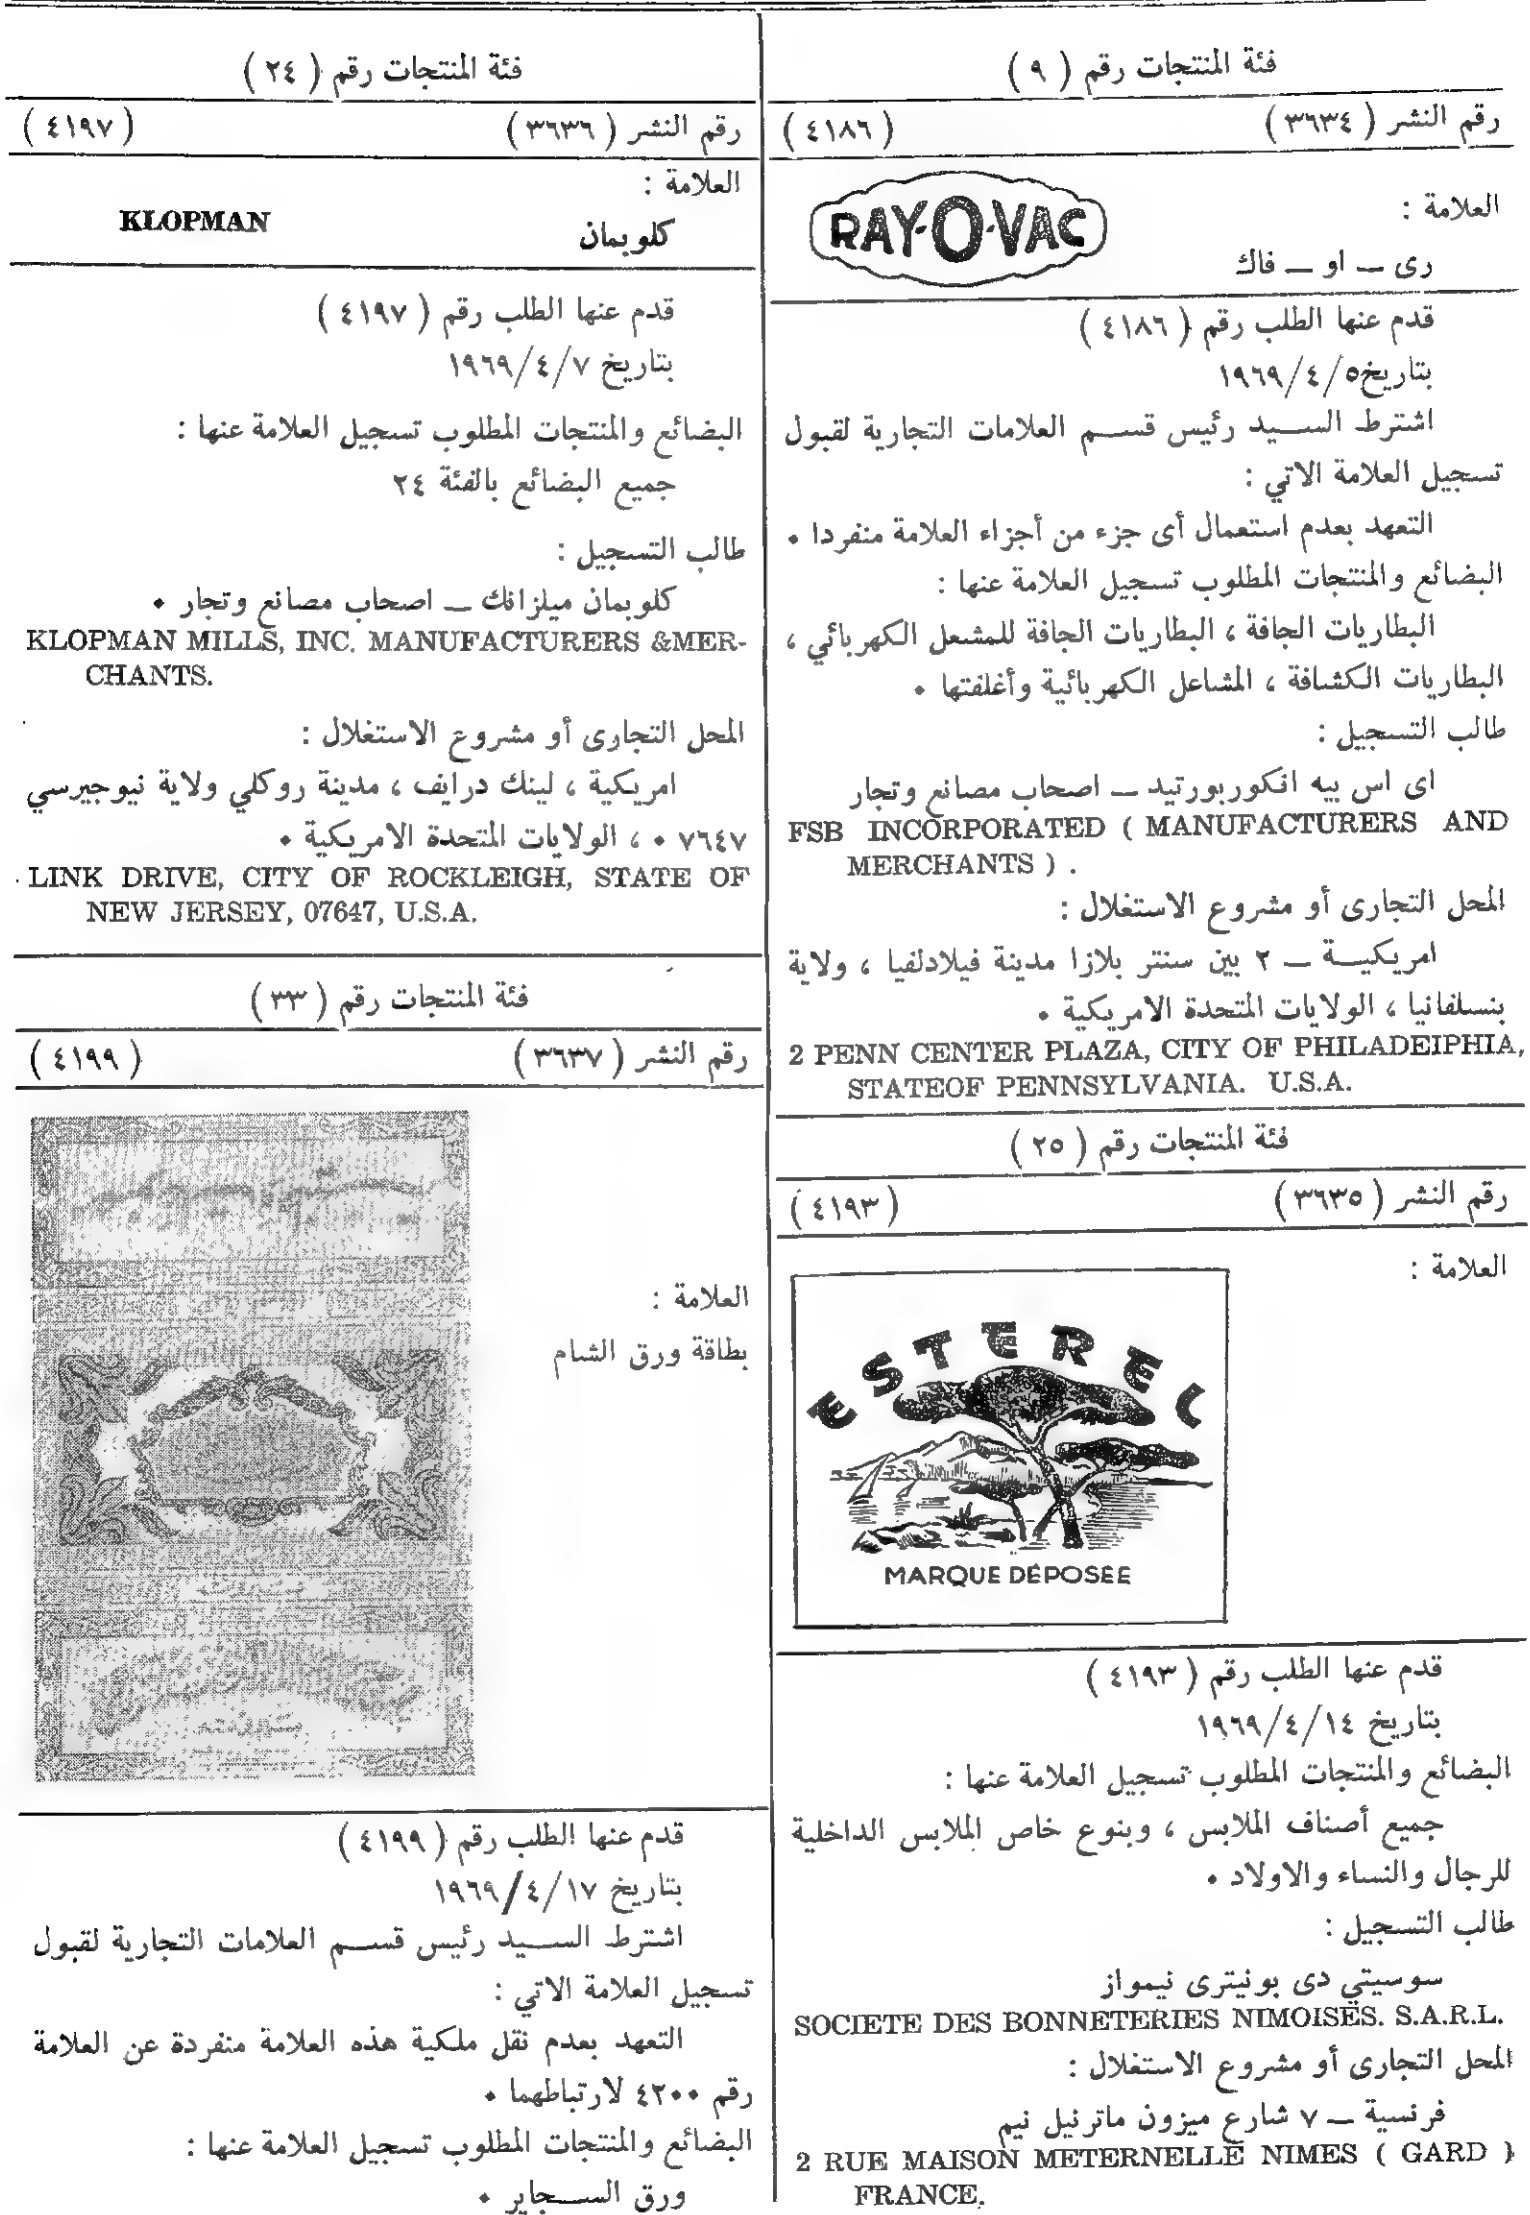 فئة المنتجات رقم ( ٩ )
رقم النشر ( ٣٦٣٤ ) ( ٤١٨٦ )
العلامة :
RAY·O·VAC
رى ـ او ـ فاك
قدم عنها الطلب رقم ( ٤١٨٦ )
بتاريخ ١٩٦٩/٤/٥
اشترط السيد رئيس قسم العلامات التجارية لقبول
تسجيل العلامة الاتي :
التعهد بعدم استعمال أى جزء من أجزاء العلامة منفردا ٠
البضائع والمنتجات المطلوب تسجيل العلامة عنها :
البطاريات الجافة ، البطاريات الجافة للمشعل الكهربائي ،
البطاريات الكشافة ، المشاعل الكهربائية وأغلفتها ٠
طالب التسجيل :
اى اس بيه انكوربورتيد ـ اصحاب مصانع وتجار
FSB INCORPORATED ( MANUFACTURERS AND
MERCHANTS ) .
المحل التجارى أو مشروع الاستغلال :
امريكية ـ ٢ بين سنتر بلازا مدينة فيلادلفيا ، ولاية
بنسلفانيا ، الولايات المتحدة الامريكية ٠
2 PENN CENTER PLAZA, CITY OF PHILADEIPHIA,
STATEOF PENNSYLVANIA. U.S.A.
فئة المنتجات رقم ( ٢٥ )
رقم النشر ( ٣٦٣٥ ) ( ٤١٩٣ )
العلامة :
ESTEREL
MARQUE DÉPOSÉE
قدم عنها الطلب رقم ( ٤١٩٣ )
بتاريخ ١٩٦٩/٤/١٤
البضائع والمنتجات المطلوب تسجيل العلامة عنها :
جميع أصناف الملابس ، وبنوع خاص الملابس الداخلية
للرجال والنساء والاولاد ٠
طالب التسجيل :
سوسيتي دى بونيترى نيمواز
SOCIETE DES BONNETERIES NIMOISES. S.A.R.L.
المحل التجارى أو مشروع الاستغلال :
فرنسية ـ ٧ شارع ميزون ماترنيل نيم
2 RUE MAISON METERNELLE NIMES ( GARD )
FRANCE.
فئة المنتجات رقم ( ٢٤ )
رقم النشر ( ٣٦٣٦ ) ( ٤١٩٧ )
العلامة :
KLOPMAN
كلوبمان
قدم عنها الطلب رقم ( ٤١٩٧ )
بتاريخ ١٩٦٩/٤/٧
البضائع والمنتجات المطلوب تسجيل العلامة عنها :
جميع البضائع بالفئة ٢٤
طالب التسجيل :
كلوبمان ميلزانك ـ اصحاب مصانع وتجار ٠
KLOPMAN MILLS, INC. MANUFACTURERS &MER-
CHANTS.
المحل التجارى أو مشروع الاستغلال :
امريكية ، لينك درايف ، مدينة روكلي ولاية نيوجيرسي
٧٦٤٧ ٠ ، الولايات المتحدة الامريكية ٠
LINK DRIVE, CITY OF ROCKLEIGH, STATE OF
NEW JERSEY, 07647, U.S.A.
فئة المنتجات رقم ( ٣٣ )
رقم النشر ( ٣٦٣٧ ) ( ٤١٩٩ )
العلامة :
بطاقة ورق الشام
قدم عنها الطلب رقم ( ٤١٩٩ )
بتاريخ ١٩٦٩/٤/١٧
اشترط السيد رئيس قسم العلامات التجارية لقبول
تسجيل العلامة الاتي :
التعهد بعدم نقل ملكية هذه العلامة منفردة عن العلامة
رقم ٤٢٠٠ لارتباطهما ٠
البضائع والمنتجات المطلوب تسجيل العلامة عنها :
ورق السجاير ٠